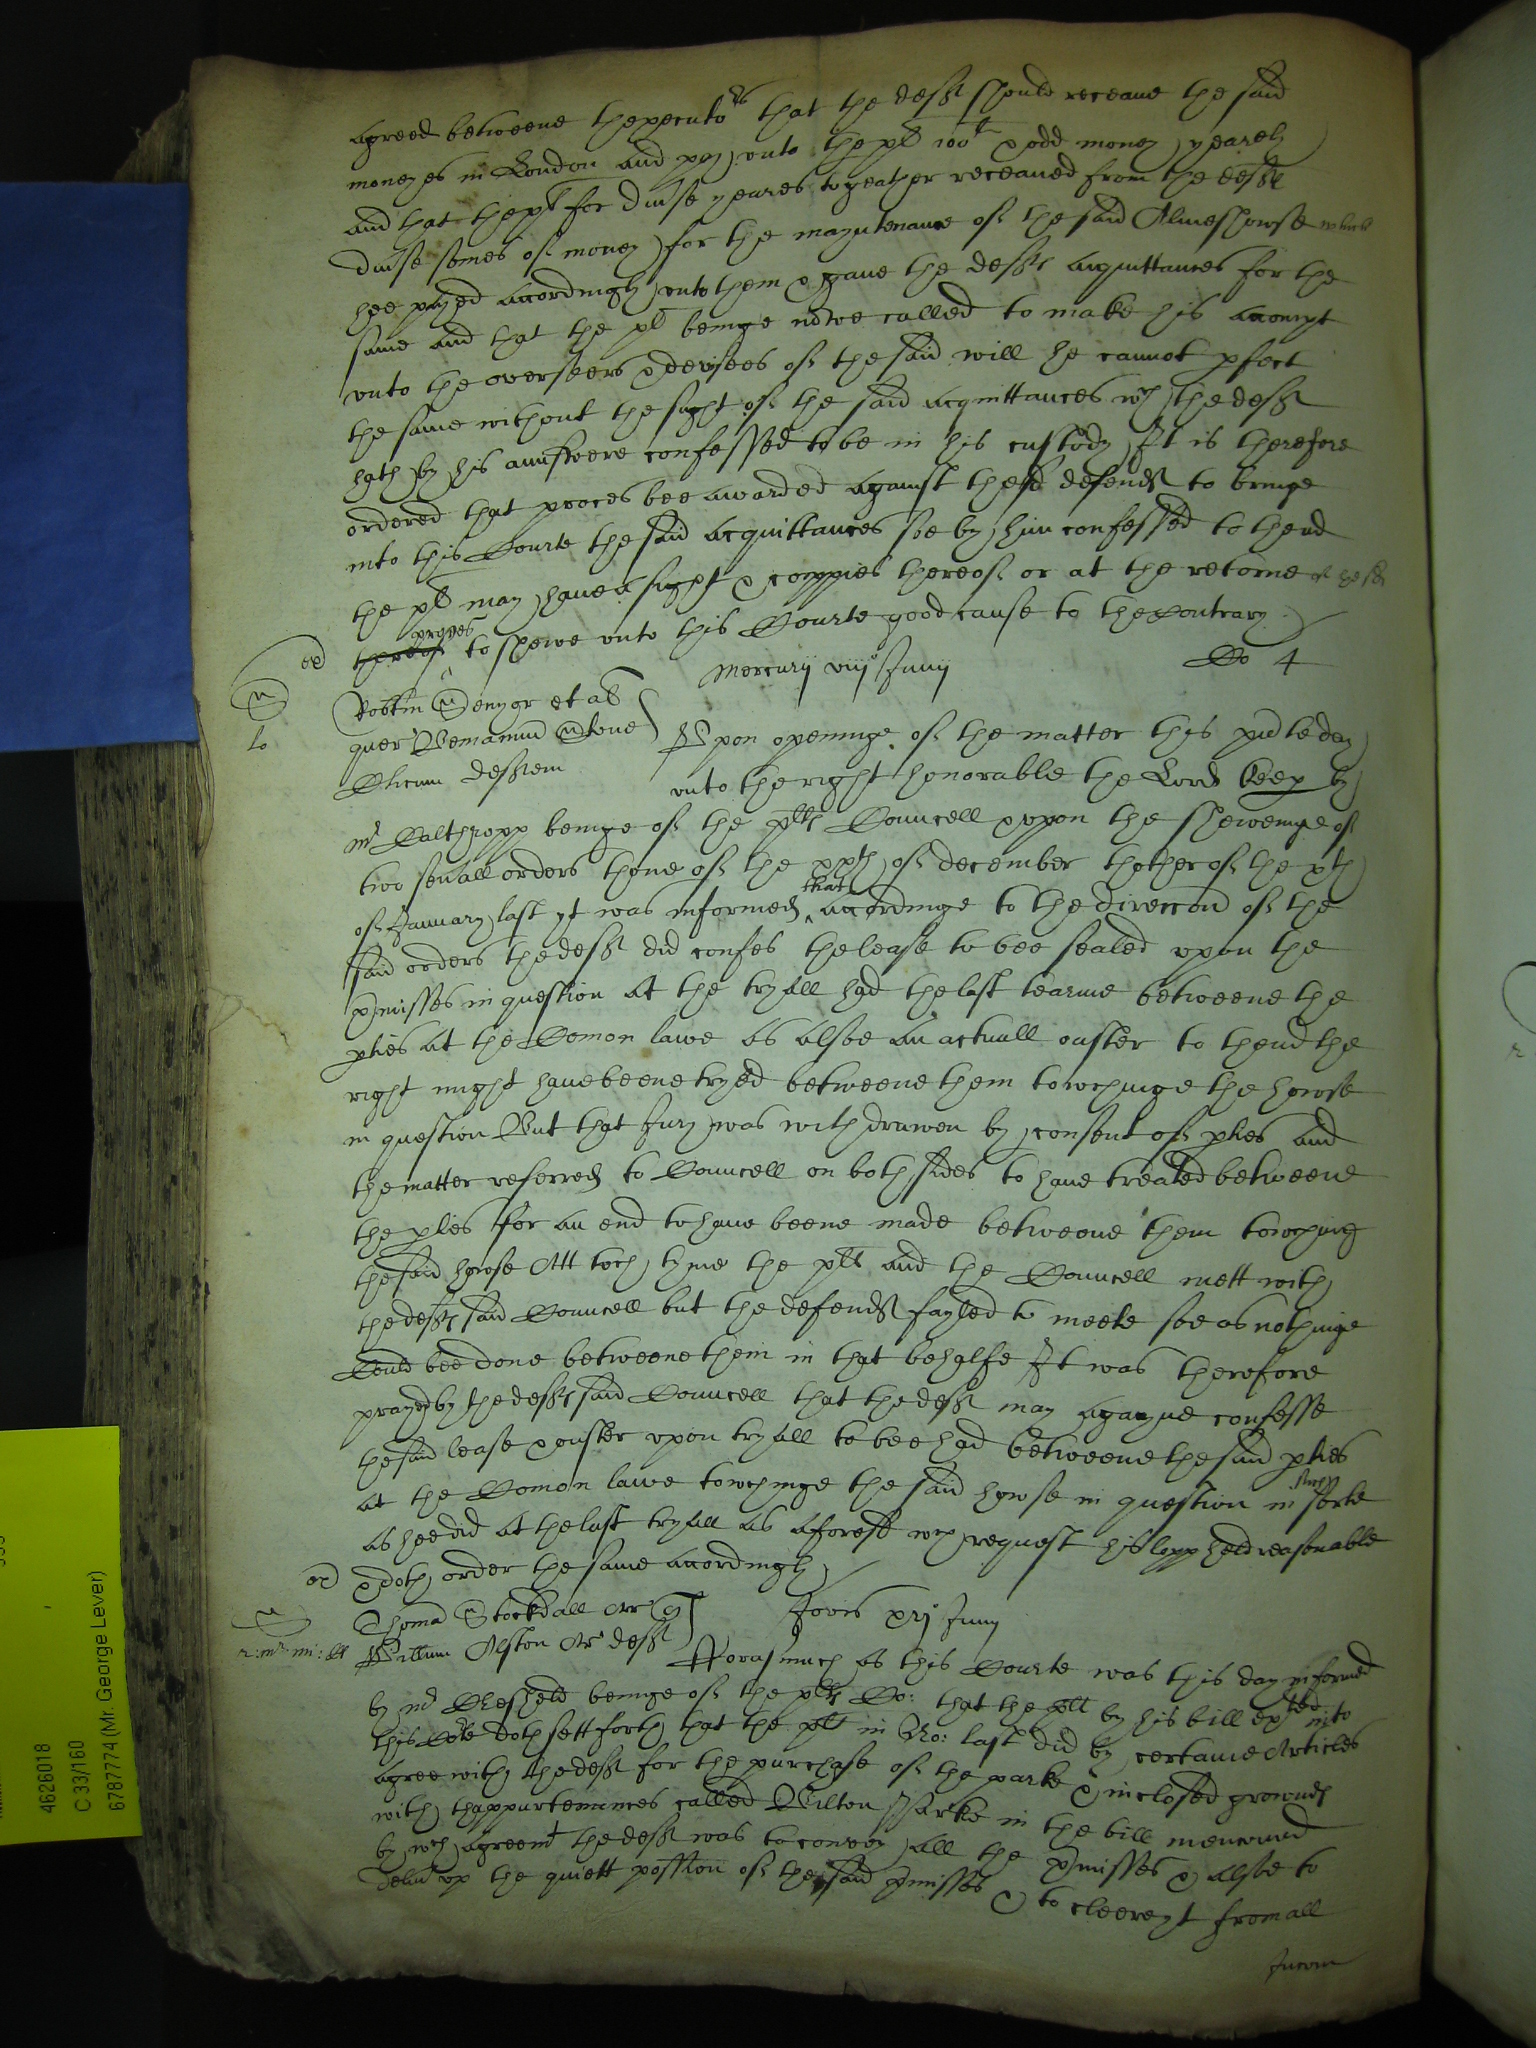 agreed betweene thexecuto^rs that the deft should receaue the said
moneyes in London and pay vnto the pl 100^l & odd money yearely
and that the pl for diuse yeares togeather receaued from the deft
diuse somes of money for the mayntenance of the said Almeshowse which
hee payed accordingly vnto them & gaue the deft acquittances for the
same and that the pl beinge nowe called to make his accompt
vnto the overseers & devisees of the said will he cannot pfect
the same without the sight of the said acquittances w^ch the deft
hath by his aunswere confessed to be in his custody It is therefore
ordered that proces bee awarded against the defend^t to bringe
into this Courte the said acquittances soe by him confessed to thend
the pl may haue a sight & coppies thereof or at the retorne of the sd
proces
thereof to shewe vnto this Courte good cause to the contrary
ex
Mercurij viij^o Junij
Co 4
S
lo
et al
quer Beniamin Stone
Clicum defftem
Vpon openinge of the matter this pnte day
vnto the right honorable the Lord Keep by
m^r Calthropp beinge of the plts Councell & vppon the shewenge of
two seuall orders thone of the xxth of December thother of the xth
of January last yt was informed that accordinge to the direccon of the
said orders the deft did confes the lease to bee sealed vpon the
pmisses in question at the tryall had the last tearme betweene the
pties at the Comon lawe as alsoe an actuall ouster to thend the
right might haue beene tryed betweene them towchinge the howse
in question But that Jury was withdrawen by consent of pties and
the matter referred to Councell on both sides to haue treated betweene
the pties for an end to haue beene made betweene them towching
the said howse Att w^ch tyme the plt and the Councell mett with
the defts said Councell but the defend^t fayled to meete soe as nothinge
Could bee done betweene them in that behalfe It was therefore
prayed by the defts said Councell that the deft may agayne confesse
the said lease & ouster vpon tryall to bee had betweene the said pties
at the Comon lawe towchinge the said howse in question in such sorte
as hee did at the last tryall as aforesd w^ch request his lopp held reasonable
& doth order the same accordingly
ex
Thoma Stockdall Ar q
Willum Alston Ar deft
Jovis Junij
Forasmuch as this Courte was this day informed
by m^r beinge of the plts Co: that the plt by his bill exted into
this Corte doth sett forth that the plt in No: last did by certaine Articles
agree with the deft for the purchase of the parke & inclosed grownds
with thappurtennces called Wilton Parke in the bill mencioned
by w^ch agreem^t the deft was to convey all the pmisses & alsoe to
deliu vp the quiett possion of the said pmisses & to cleere yt from all
Incom
4626018
C 33/160
67877774 (Mr. George Lever)